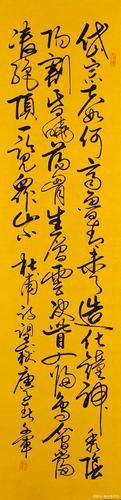 岱宗夫如何齊魯青未了造化鐘神秀陰
陽割昏曉蕩胸生層雲決眥入歸鳥會當
凌絕頂一覽眾山小 杜甫詩望嶽 庚子